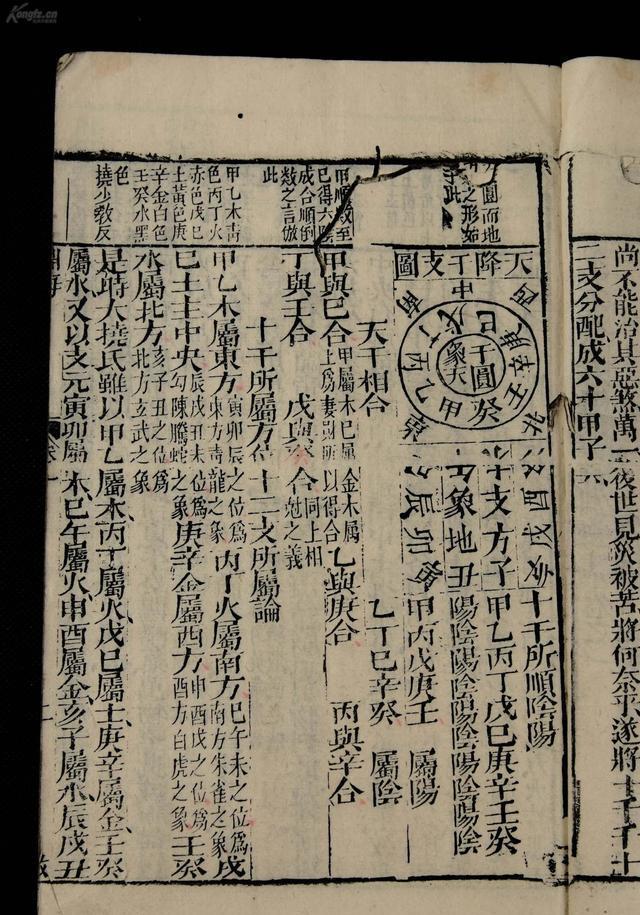 Kongfz.cn
尚不能治其惡煞萬一後世見災被苦將何奈乎遂將十干十
二支分配成六十甲子
圓而地
之形如
此
天降干支圖
中
南
西
北
東
干圓
象天
甲乙丙丁戊己庚辛壬癸
十支方
象地
子丑
卯辰
酉戌亥
十干所順陰陽
甲乙丙丁戊己庚辛壬癸
陽陰陽陰陽陰陽陰陽陰
甲丙戊庚壬 屬陽
乙丁己辛癸 屬陰
甲順數至
己得六隂
成合順倒
数之言倣
此
天干相合
甲與己合 甲屬木己屬 金木属 乙與庚合 丙與辛合
上爲妻財所以得合
丁與壬合 戊與癸合 同上相
尅之義
十干所屬方位 十二支所屬論
甲乙木青
色丙丁火
赤色戊己
土黃色庚
辛金白色
壬癸水黑
色
撓少教反
甲乙木屬東方 寅卯辰之位爲
東方青龍之象 丙丁火屬南方 巳午未之位爲
南方朱雀之象 戊
己土主中央 辰戌丑未位爲
勾陳騰蛇之象 庚辛金屬西方 申酉戌之位爲
西方白虎之象 壬癸
水屬北方 亥子丑之位爲
北方玄武之象
是時大撓氏雖以甲乙屬木丙丁屬火戊己屬土庚辛屬金壬癸
屬水又以支元寅卯屬木巳午屬火申酉屬金亥子屬水辰戌丑
淵海
卷一
二